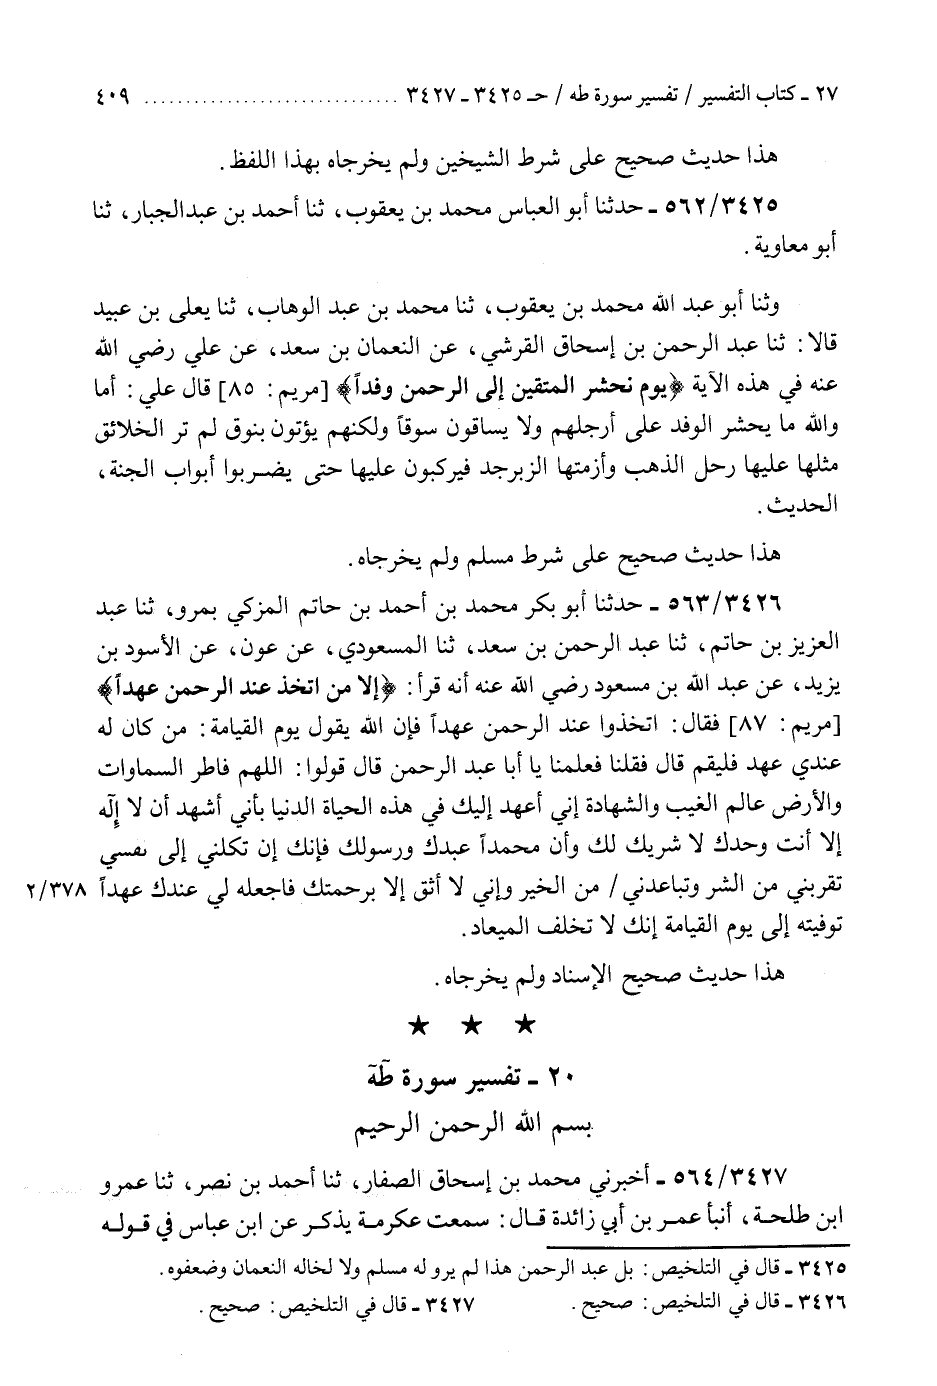 ٢٧ ـ كتاب التفسير / تفسير سورة طه / حـ ٣٤٢٥ ـ ٣٤٢٧ .............................. ٤٠٩
هذا حديث صحيح على شرط الشيخين ولم يخرجاه بهذا اللفظ.
٥٦٢/٣٤٢٥ ـ حدثنا أبو العباس محمد بن يعقوب، ثنا أحمد بن عبدالجبار، ثنا
أبو معاوية.
وثنا أبو عبد الله محمد بن يعقوب، ثنا محمد بن عبد الوهاب، ثنا يعلى بن عبيد
قالا: ثنا عبد الرحمن بن إسحاق القرشي، عن النعمان بن سعد، عن علي رضي الله
عنه في هذه الآية ﴿يوم نحشر المتقين إلى الرحمن وفداً﴾ [مريم: ٨٥] قال علي: أما
والله ما يحشر الوفد على أرجلهم ولا يساقون سوقاً ولكنهم يؤتون بنوق لم تر الخلائق
مثلها عليها رحل الذهب وأزمتها الزبرجد فيركبون عليها حتى يضربوا أبواب الجنة،
الحديث.
هذا حديث صحيح على شرط مسلم ولم يخرجاه.
٥٦٣/٣٤٢٦ ـ حدثنا أبو بكر محمد بن أحمد بن حاتم المزكي بمرو، ثنا عبد
العزيز بن حاتم، ثنا عبد الرحمن بن سعد، ثنا المسعودي، عن عون، عن الأسود بن
يزيد، عن عبد الله بن مسعود رضي الله عنه أنه قرأ: ﴿إلا من اتخذ عند الرحمن عهداً﴾
[مريم: ٨٧] فقال: اتخذوا عند الرحمن عهداً فإن الله يقول يوم القيامة: من كان له
عندي عهد فليقم قال فقلنا فعلمنا يا أبا عبد الرحمن قال قولوا: اللهم فاطر السماوات
والأرض عالم الغيب والشهادة إني أعهد إليك في هذه الحياة الدنيا بأني أشهد أن لا إله
إلا أنت وحدك لا شريك لك وأن محمداً عبدك ورسولك فإنك إن تكلني إلى نفسي
تقربني من الشر وتباعدني / من الخير وإني لا أثق إلا برحمتك فاجعله لي عندك عهداً ٢/٣٧٨
توفيته إلى يوم القيامة إنك لا تخلف الميعاد.
هذا حديث صحيح الإسناد ولم يخرجاه.
★ ★ ★
٢٠ ـ تفسير سورة طٓهٓ
بسم الله الرحمن الرحيم
٥٦٤/٣٤٢٧ ـ أخبرني محمد بن إسحاق الصفار، ثنا أحمد بن نصر، ثنا عمرو
ابن طلحة، أنبأ عمر بن أبي زائدة قال: سمعت عكرمة يذكر عن ابن عباس في قوله
٣٤٢٥ ـ قال في التلخيص: بل عبد الرحمن هذا لم يرو له مسلم ولا لخاله النعمان وضعفوه.
٣٤٢٦ ـ قال في التلخيص: صحيح. ٣٤٢٧ ـ قال في التلخيص: صحيح.